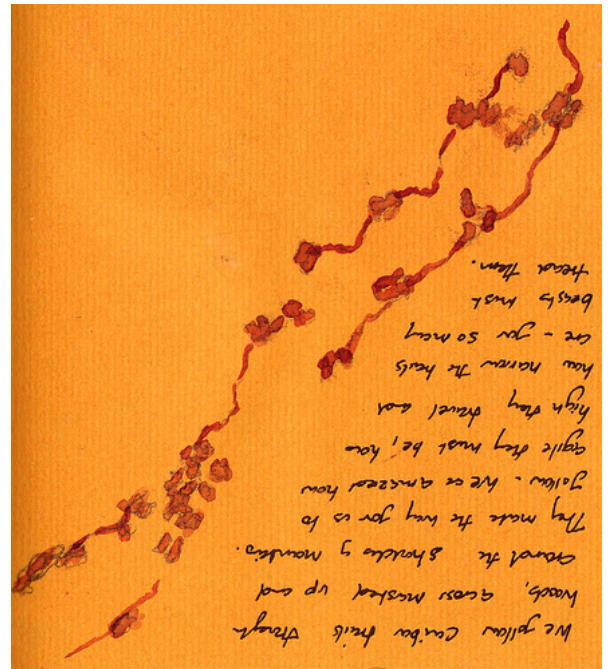 We follow Caribou trails through
woods, across marshed up and
around the shoulders of mountains.
They make the way for us to
follow. We're amazed how
agile they must be, how
high they travel and
how narrow the trails
are - for so many
beasts must
tread them.